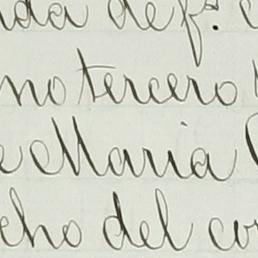 da de fs.
no tercero
e Maria
cho del cor